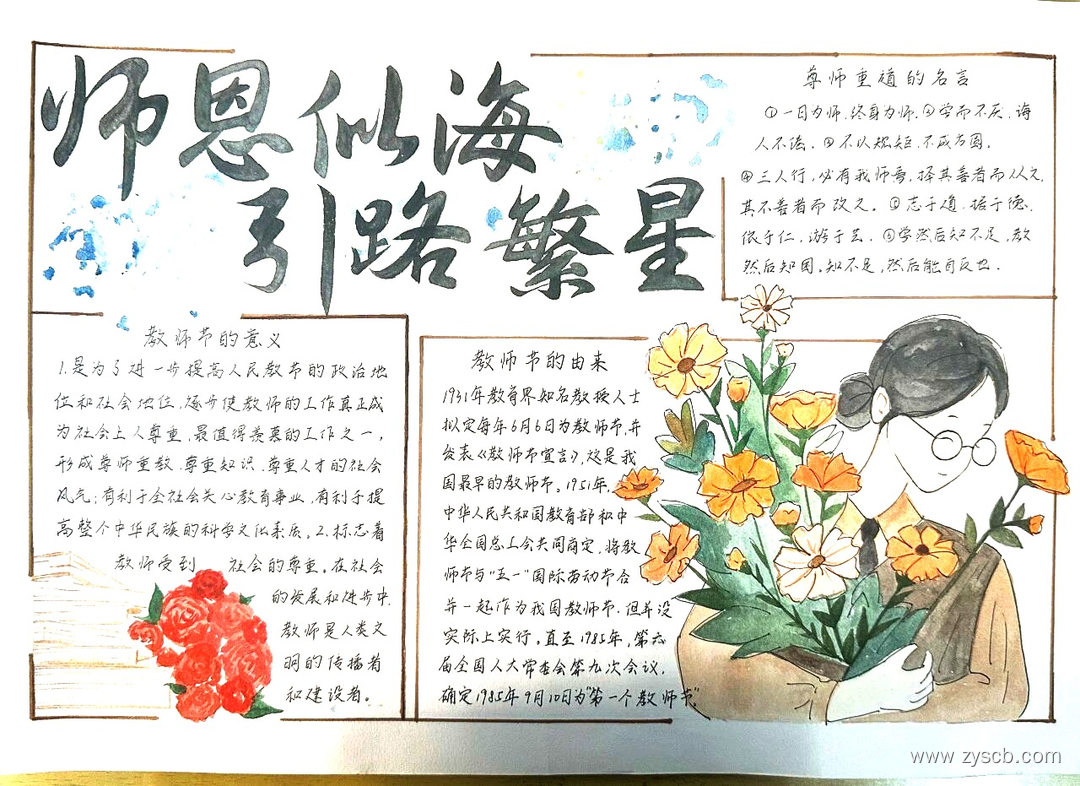 师恩似海
引路繁星
尊师重道的名言
①一日为师,终身为师.②学而不厌,诲
人不倦.③不以规矩,不成方圆.
④三人行,必有我师焉,择其善者而从之,
其不善者而改之.⑤志于道.据于德.
依于仁,游于艺.⑥学然后知不足,教
然后知困.知不足,然后能自反也.
教师节的意义
1.是为了进一步提高人民教师的政治地
位和社会地位.逐步使教师的工作真正成
为社会上人尊重.最值得羡慕的工作之一,
形成尊师重教.尊重知识.尊重人才的社会
风气;有利于全社会关心教育事业.有利于提
高整个中华民族的科学文化素质。2.标志着
教师受到 社会的尊重。在社会
的发展和进步中,
教师是人类文
明的传播者
和建设者。
教师节的由来
1931年教育界知名教授人士
拟定每年6月6日为教师节,并
发表《教师节宣言》,这是我
国最早的教师节。1951年,
中华人民共和国教育部和中
华全国总工会共同商定,将教
师节与"五一"国际劳动节合
并一起作为我国教师节.但并没
实际上实行。直至1985年,第六
届全国人大常委会第九次会议,
确定1985年9月10日为"第一个教师节".
www.zyscb.com